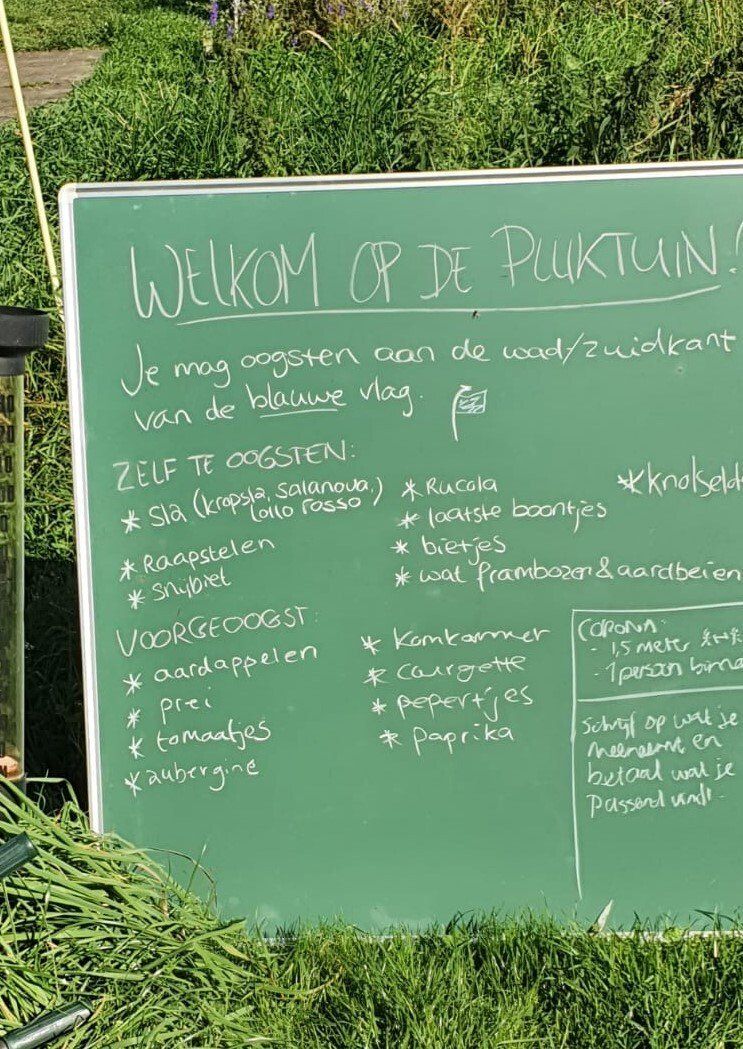 WELKOM OP DE PLUKTUIN!
Je mag oogsten aan de wad/zuidkant
van de blauwe vlag.
ZELF TE OOGSTEN:
* Sla (kropsla, Salanova,
lollo rosso)
* Raapstelen
* Snijbiet
* Rucola
* laatste boontjes
* bietjes
* wat frambozen & aardbeien
* knolseld
VOORGEOOGST:
* aardappelen
* prei
* tomaatjes
* aubergine
* Komkommer
* Courgette
* pepertjes
* paprika
CORONA:
- 1,5 meter
- 1 persoon binne
Schrijf op wat je
meeneemt en
betaal wat je
passend vindt.